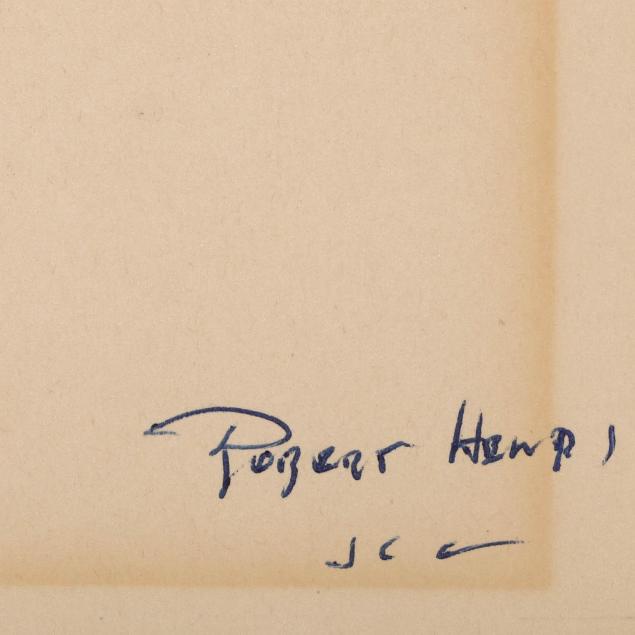 Robert Henri
J C L